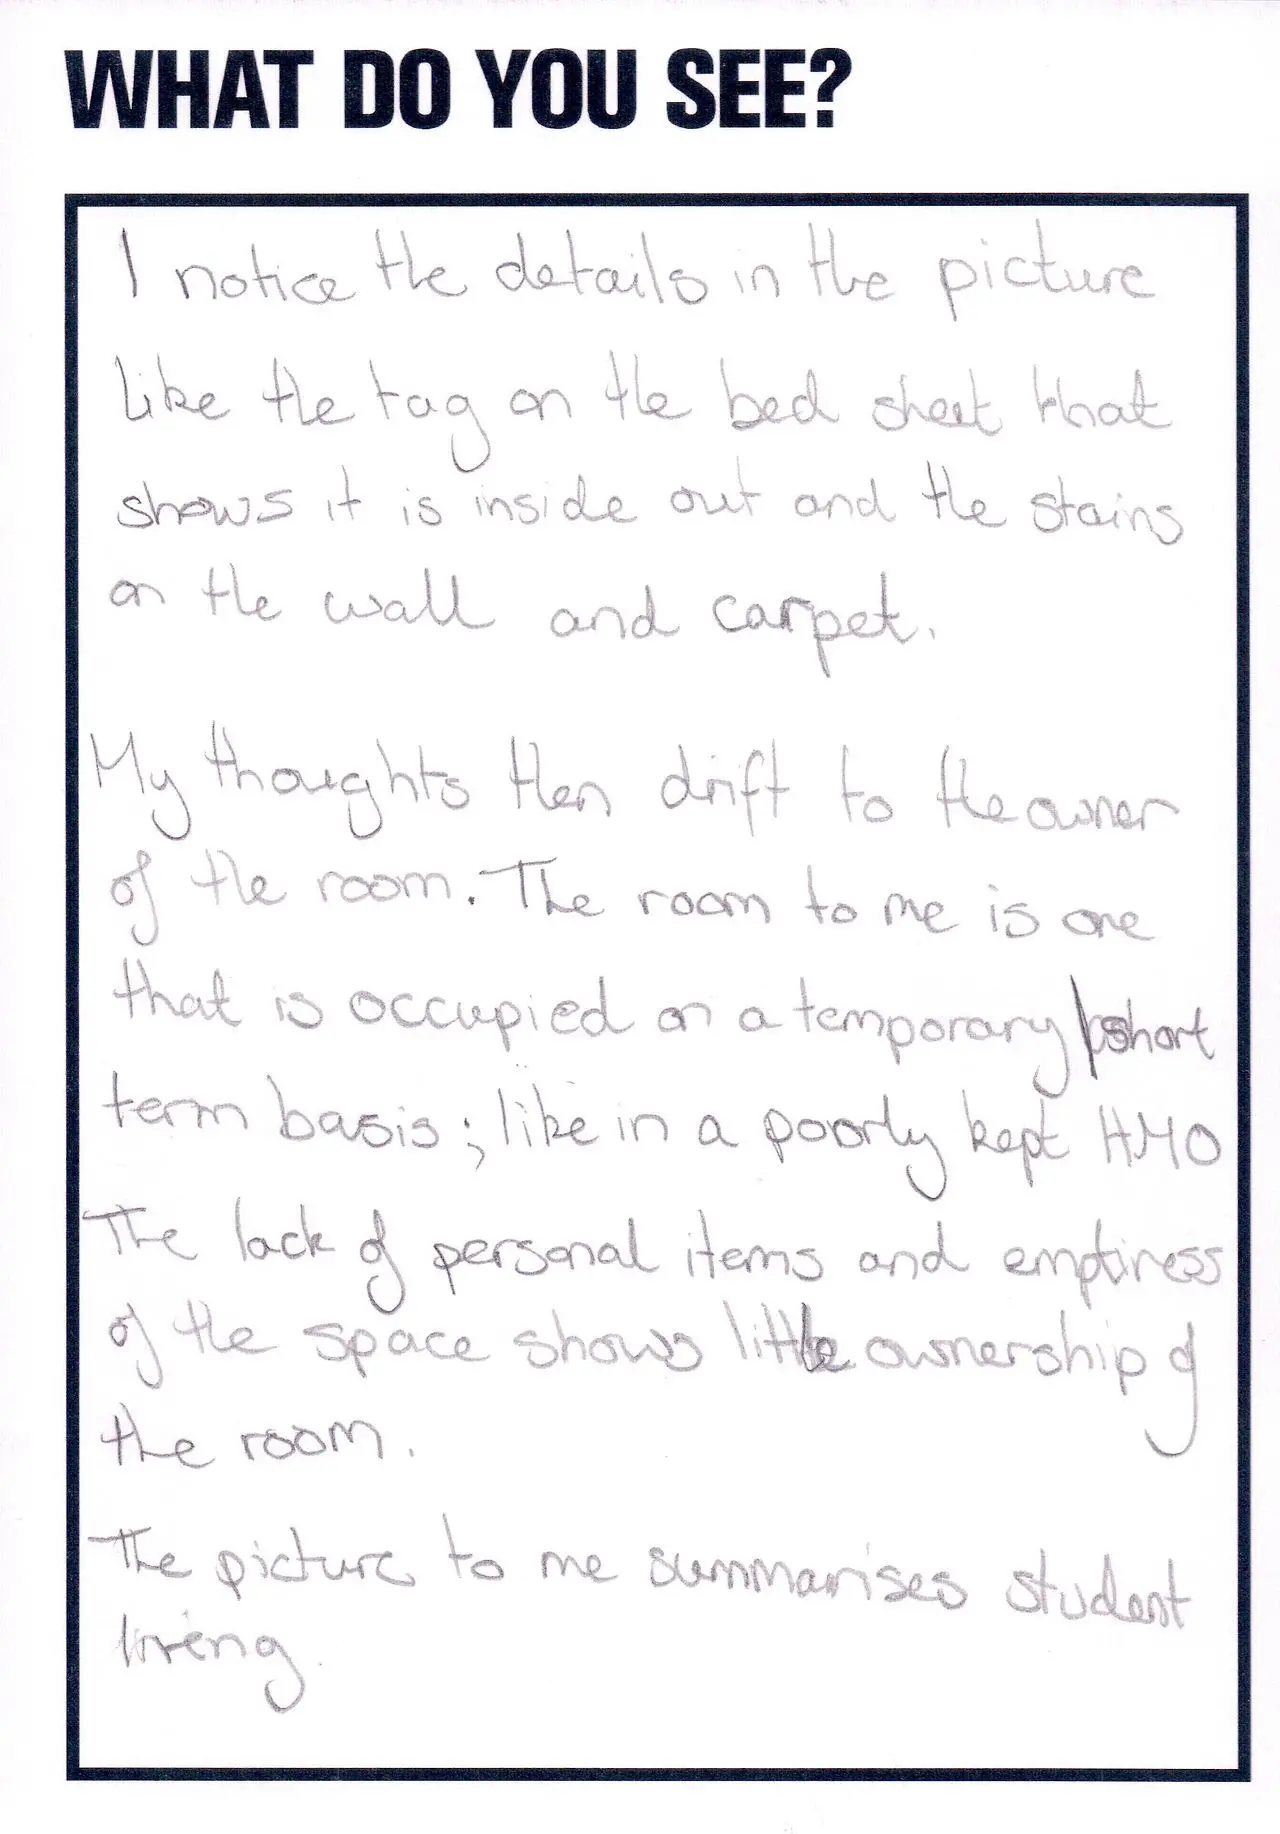 WHAT DO YOU SEE?
I notice the details in the picture
like the tag on the bed sheet that
shows it is inside out and the stains
on the wall and carpet.
My thoughts then drift to the owner
of the room. The room to me is one
that is occupied on a temporary / short
term basis; like in a poorly kept HMO
The lack of personal items and emptiness
of the space shows little ownership of
the room.
The picture to me summarises student
living.